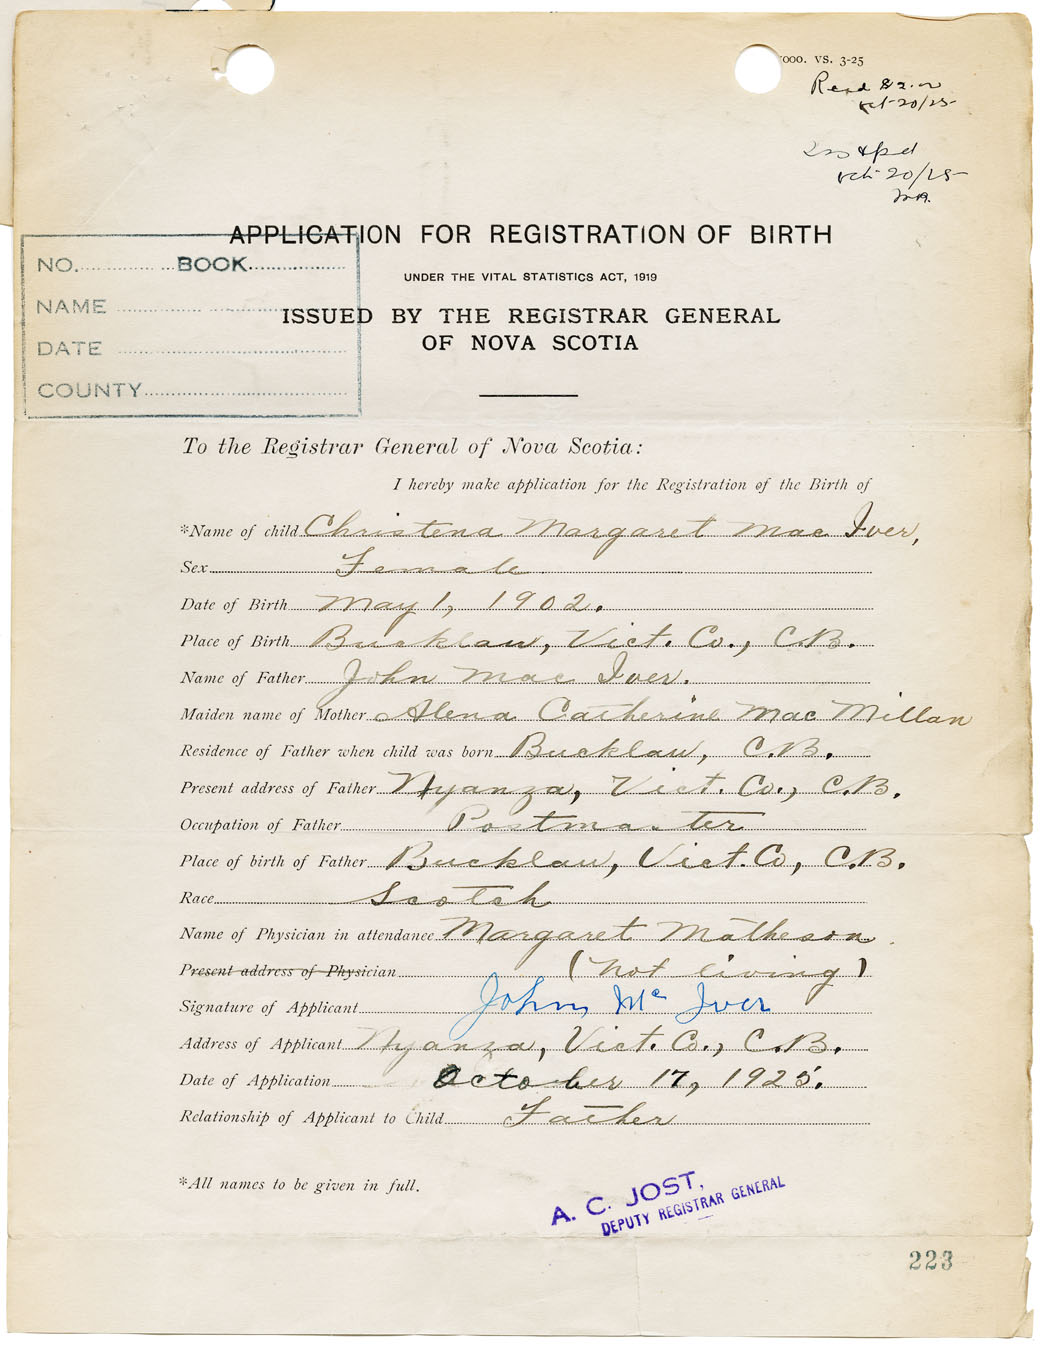 000. VS. 3-25
Recd $2.00
Oct 20/25
Oct 20/25
APPLICATION FOR REGISTRATION OF BIRTH
UNDER THE VITAL STATISTICS ACT, 1919
ISSUED BY THE REGISTRAR GENERAL
OF NOVA SCOTIA
NO. BOOK
NAME
DATE
COUNTY
To the Registrar General of Nova Scotia:
I hereby make application for the Registration of the Birth of
*Name of child Christena Margaret Mac Iver,
Sex Female
Date of Birth May 1, 1902.
Place of Birth Bucklaw, Vict. Co., C.B.
Name of Father John Mac Iver.
Maiden name of Mother Alena Catherine Mac Millan
Residence of Father when child was born Bucklaw, C.B.
Present address of Father Nyanza, Vict. Co., C.B.
Occupation of Father Postmaster
Place of birth of Father Bucklaw, Vict. Co, C.B.
Race Scotch
Name of Physician in attendance Margaret Matheson.
Present address of Physician (not living)
Signature of Applicant John Mc Iver
Address of Applicant Nyanza, Vict. Co., C.B.
Date of Application October 17, 1925.
Relationship of Applicant to Child Father
*All names to be given in full.
A. C. JOST,
DEPUTY REGISTRAR GENERAL
223